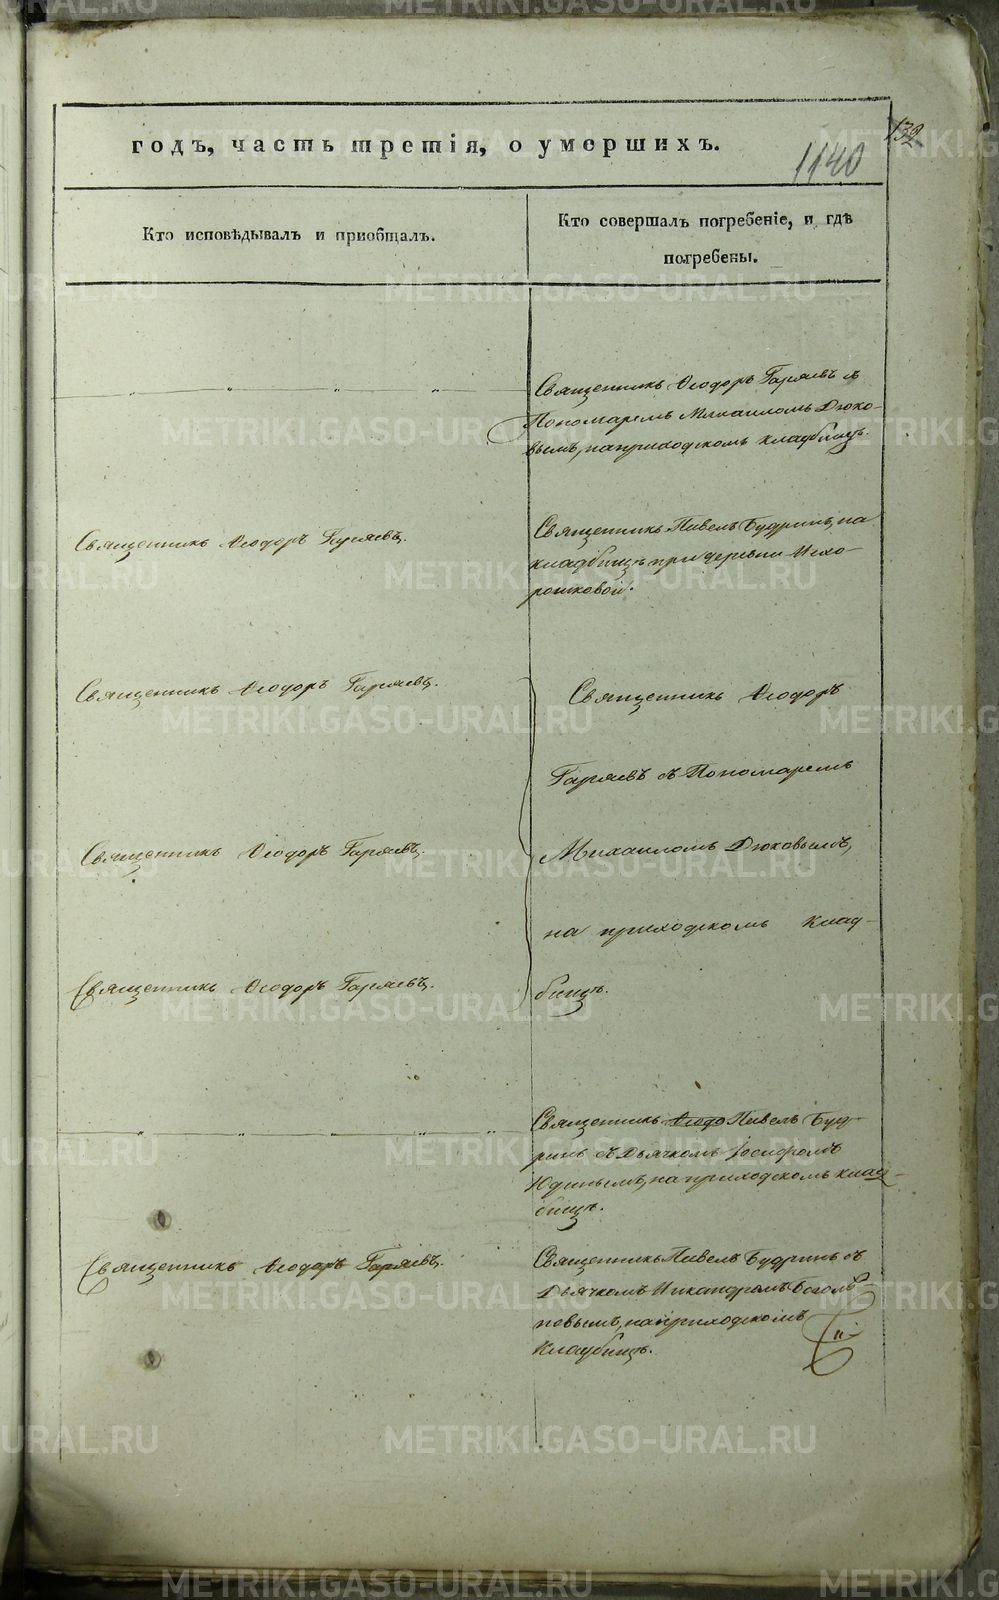 годъ, часть третія, о умершихъ.
132
1140
Кто исповѣдывалъ и приобщалъ.
Кто совершалъ погребеніе, и гдѣ
погребены.
Священникъ Ѳеодоръ Гаряевъ съ
Пономаремъ Михаиломъ Дюко-
вымъ, на приходскомъ кладбищѣ.
Священникъ Ѳеодоръ Гаряевъ.
Священникъ Павелъ Будринъ, на
кладбищѣ при деревни Ишо-
рошковой.
Священникъ Ѳеодоръ Гаряевъ.
Священникъ Ѳеодоръ Гаряевъ.
Священникъ Ѳеодоръ Гаряевъ.
Священникъ Ѳеодоръ
Гаряевъ съ Пономаремъ
Михаиломъ Дюковымъ,
на приходскомъ клад-
бищѣ.
Священникъ Ѳеодо Павелъ Буд-
ринъ съ Дьячкомъ Іосифомъ
Юдинымъ, на приходскомъ клад-
бищѣ.
Священникъ Ѳеодоръ Гаряевъ.
Священникъ Павелъ Будринъ съ
Дьячкомъ Никандромъ Боголѣ-
повымъ, на приходскомъ
кладбищѣ.
METRIKI.GASO-URAL.RU